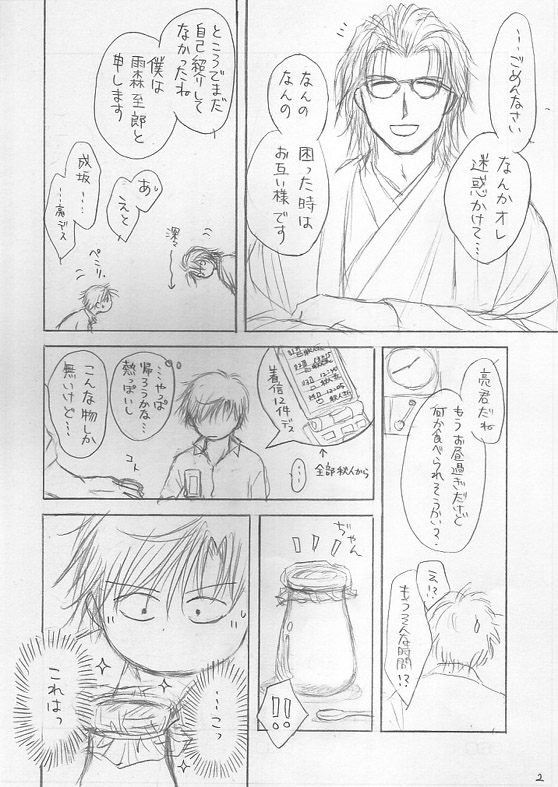 …ごめんなさい
なんかオレ
迷惑かけて…
なんの
なんの
困った時は
お互い様です
ところでまだ
自己紹介して
なかったね
僕は
雨森至郎と
申します
あ
えと
成坂…
…亮デス
深々
ペこリ。
亮君だね
もうお昼過ぎだけど
何か食べられそうかい?
え!?
もうそんな時間!?
着信12件
デス
↑
全部秋人から
…
…やっぱ
帰ろうかな…
熱っぽいし
コト
こんな物しか
無いけど…
ぢゃん
!!!
!!
…こっ
これはっ
2